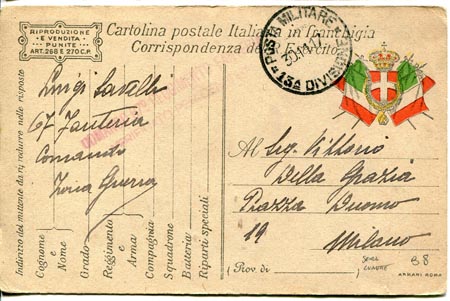 RIPRODUZIONE
E VENDITA
PUNITE
ART. 268 E 270 C.P.
Cartolina postale Italiana in franchigia
Corrispondenza del R. Esercito
POSTA MILITARE
13A DIVISIONE
Indirizzo del mittente da riprodurre nelle risposte
Cognome e Nome
Grado
Reggimento e Arma
Compagnia
Squadrone
Batteria
Riparti speciali
Luigi Savelli
67 Fanteria
Comando
Zona Guerra
Al Sig. Vittorio
Della Grazia
Piazza Duomo
19
Milano
(Prov. di )
B8
ARMANI ROMA